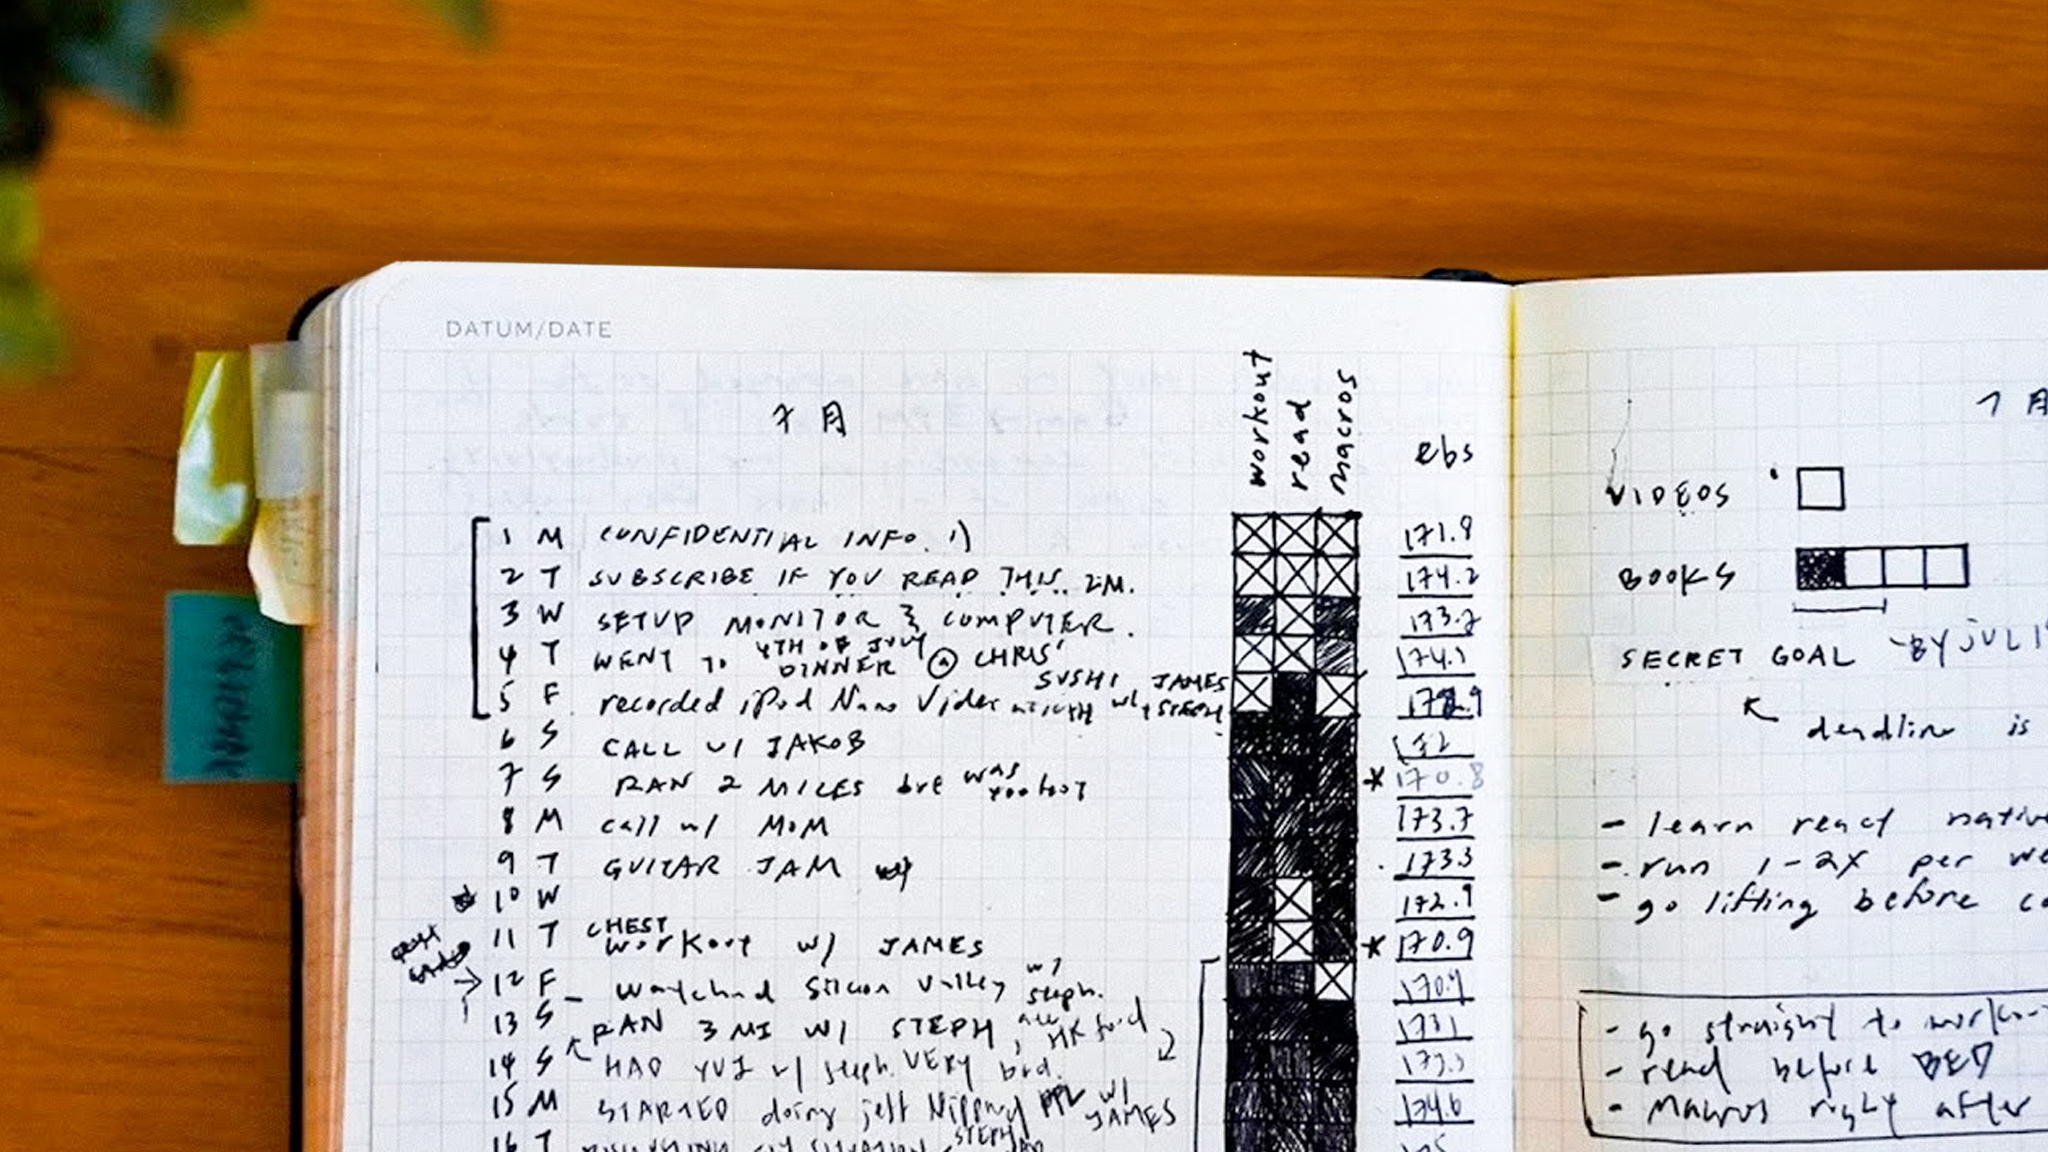 DATUM/DATE
7月
workout
read
macros
ebs
1 M CONFIDENTIAL INFO. :) 171.9
2 T SUBSCRIBE IF YOU READ THIS. 2M. 174.2
3 W SETUP MONITOR & COMPUTER. 173.2
4 T WENT TO 4TH OF JULY DINNER @ CHRIS'
5 F recorded iPod Nano Video SUSHI w/ JAMES + STEPH
6 S CALL w/ JAKOB
7 S RAN 2 MILES but was too hot * 170.8
8 M call w/ MOM 173.7
9 T GUITAR JAM 173.3
10 W 172.9
11 T CHEST workout w/ JAMES * 170.9
12 F watched Silicon Valley w/ steph.
13 S RAN 3 MI w/ STEPH, HK food 173.1
14 S HAD w/ steph. VERY bad.
15 M STARTED doing jeff Nippard PPL w/ JAMES 174.6
16 T SITUATION STEPH
7月
VIDEOS
BOOKS
SECRET GOAL - BY JUL
deadline is
- learn react native
- run 1-2x per
- go lifting before
- go straight to
- read before BED
- Macros right after